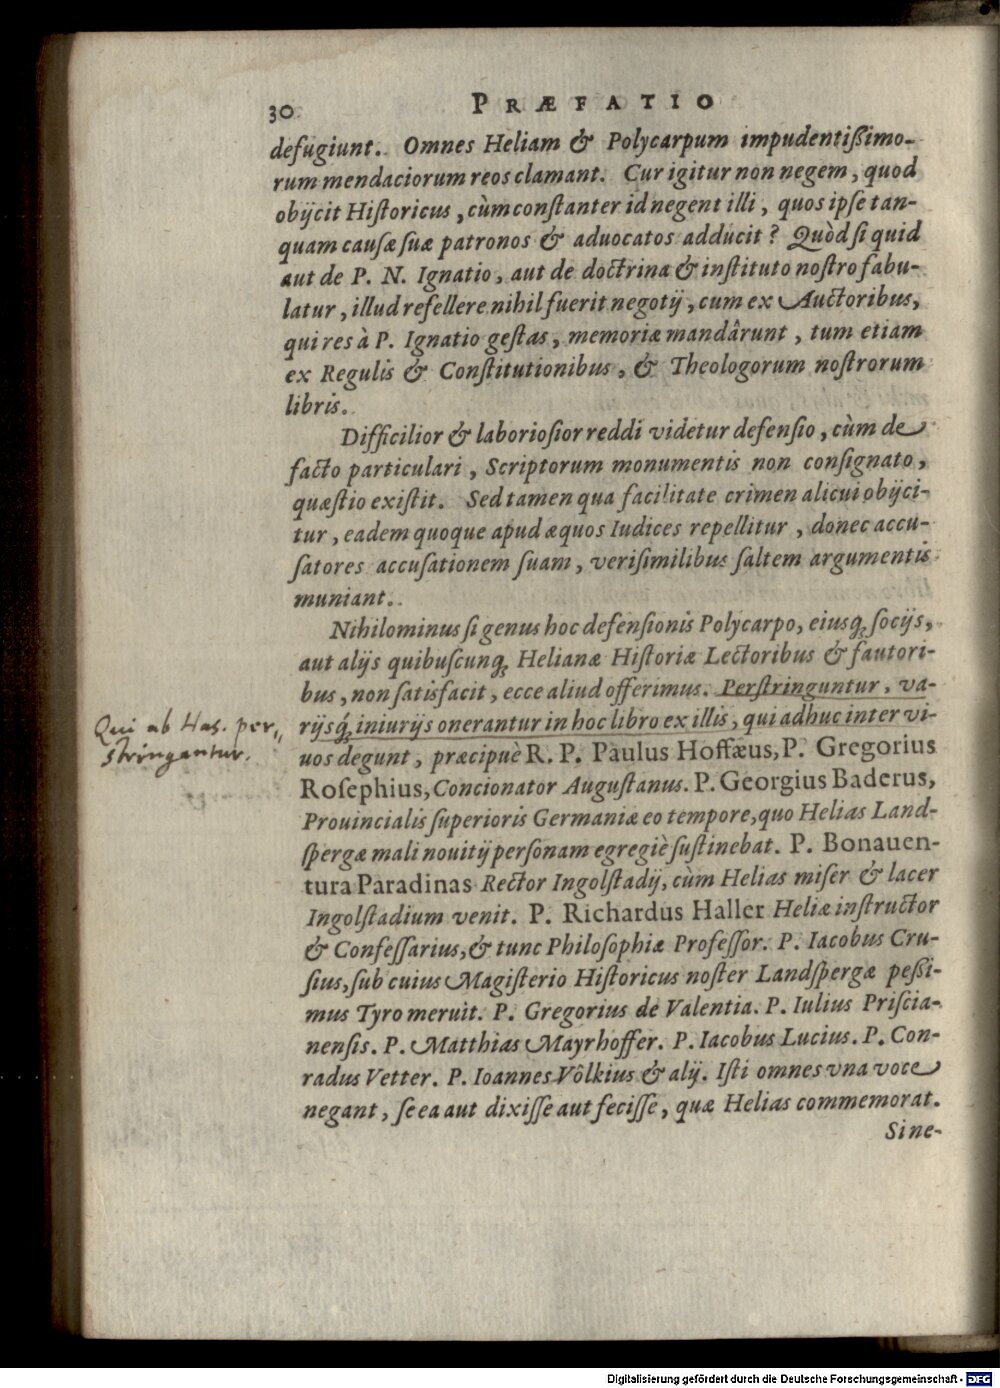 30 PRÆFATIO
defugiunt. Omnes Heliam & Polycarpum impudentißimo-
rum mendaciorum reos clamant. Cur igitur non negem, quod
obijcit Hiſtoricus, cùm conſtanter id negent illi, quos ipſe tan-
quam cauſæ ſuæ patronos & aduocatos adducit? Quòd ſi quid
aut de P. N. Ignatio, aut de doctrina & inſtituto noſtro fabu-
latur, illud refellere nihil fuerit negotij, cum ex Auctoribus,
qui res à P. Ignatio geſtas, memoriæ mandârunt, tum etiam
ex Regulis & Conſtitutionibus, & Theologorum noſtrorum
libris.
Difficilior & laborioſior reddi videtur defenſio, cùm de
facto particulari, Scriptorum monumentis non conſignato,
quæſtio exiſtit. Sed tamen qua facilitate crimen alicui obijci-
tur, eadem quoque apud æquos Iudices repellitur, donec accu-
ſatores accuſationem ſuam, veriſimilibus ſaltem argumentis
muniant.
Nihilominus ſi genus hoc defenſionis Polycarpo, eiusq́; ſocijs,
aut alijs quibuſcunq; Helianæ Hiſtoriæ Lectoribus & fautori-
bus, non ſatisfacit, ecce aliud offerimus. Perſtringuntur, va-
rijsq́; iniurijs onerantur in hoc libro ex illis, qui adhuc inter vi-
uos degunt, præcipuè R. P. Paulus Hoffæus, P. Gregorius
Roſephius, Concionator Auguſtanus. P. Georgius Baderus,
Prouincialis ſuperioris Germaniæ eo tempore, quo Helias Land-
ſpergæ mali nouitij perſonam egregiè ſuſtinebat. P. Bonauen-
tura Paradinas Rector Ingolſtadij, cùm Helias miſer & lacer
Ingolſtadium venit. P. Richardus Haller Heliæ inſtructor
& Confeſſarius, & tunc Philoſophiæ Profeſſor. P. Iacobus Cru-
ſius, ſub cuius Magiſterio Hiſtoricus noſter Landſpergæ peßi-
mus Tyro meruit. P. Gregorius de Valentia. P. Iulius Priſcia-
nenſis. P. Matthias Mayrhoffer. P. Iacobus Lucius. P. Con-
radus Vetter. P. Ioannes Vôlkius & alij. Iſti omnes vna voce
negant, ſe ea aut dixiſſe aut feciſſe, quæ Helias commemorat.
Sine-
Qui ab Has. per-
stringantur.
Digitalisierung gefördert durch die Deutsche Forschungsgemeinschaft - DFG